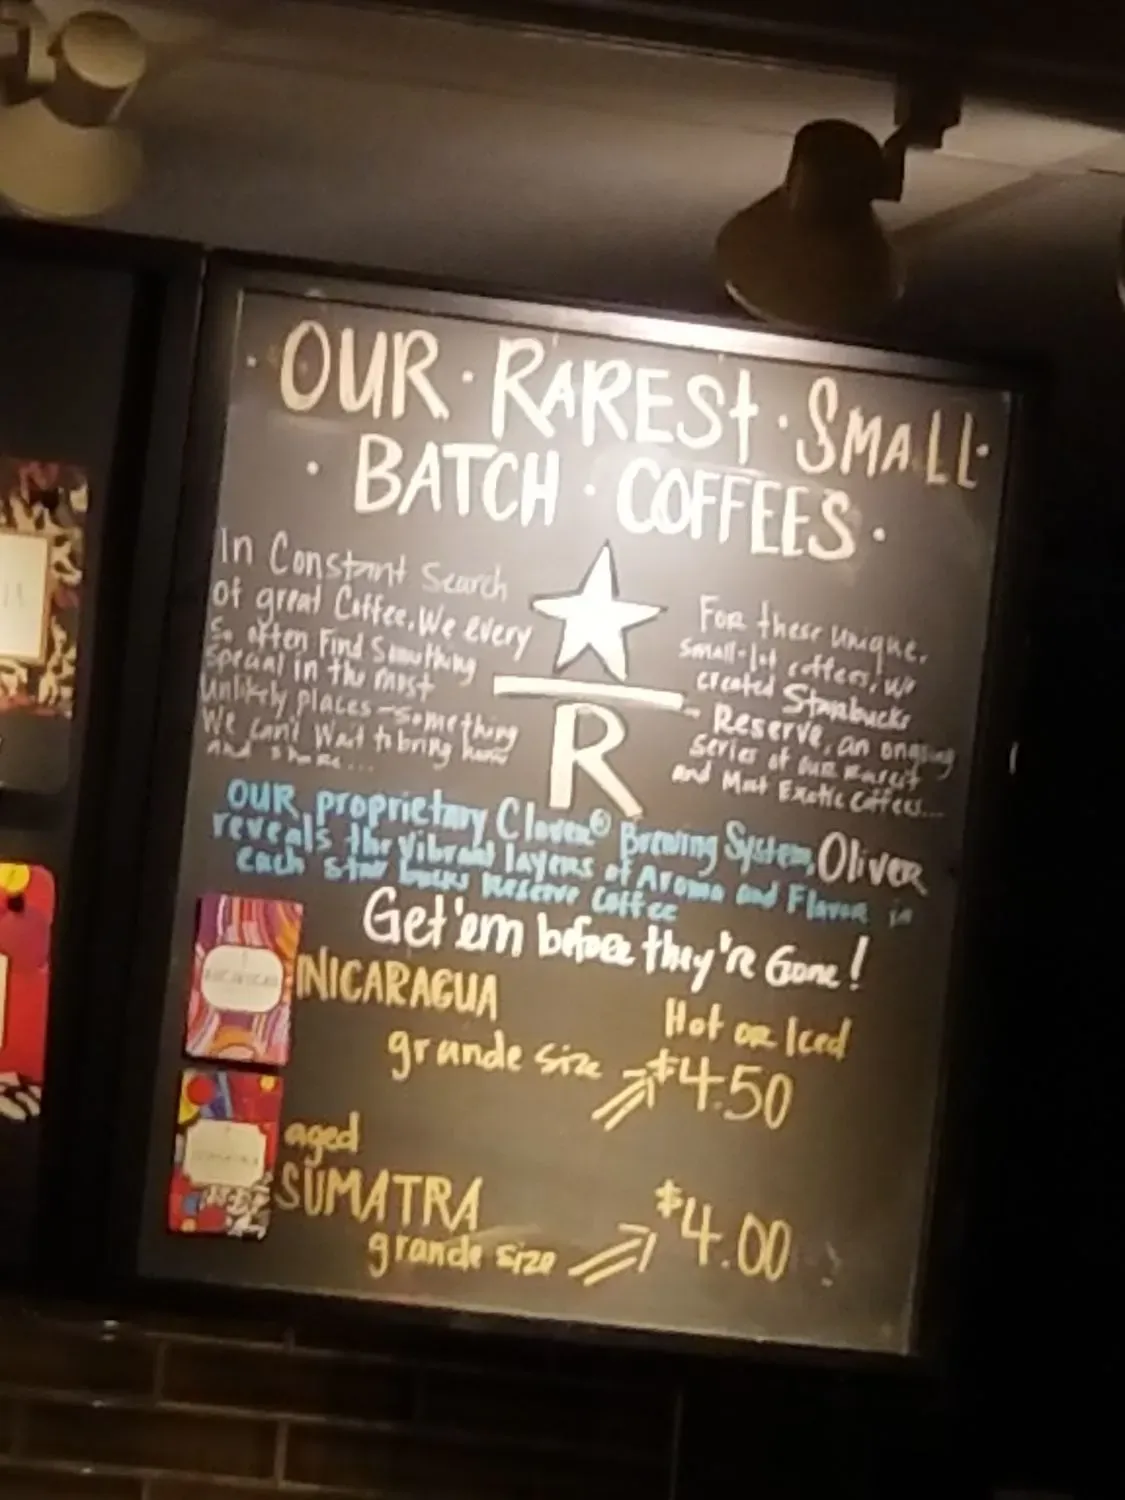 · OUR · RAREST · SMALL ·
· BATCH · COFFEES ·
In Constant Search
of great Coffee, We every
So often Find Something
special in the most
unlikely places - something
We can't Wait to bring home
and share...
R
For these unique,
small-lot coffees, we
created Starbucks
Reserve, an ongoing
series of our rarest
and Most Exotic Coffees...
OUR proprietary Clover® Brewing System, Oliver
reveals the Vibrant layers of Aroma and Flavor in
each Starbucks Reserve Coffee
Get'em before they're Gone!
NICARAGUA
Hot or Iced
grande size $4.50
aged
SUMATRA
grande size $4.00